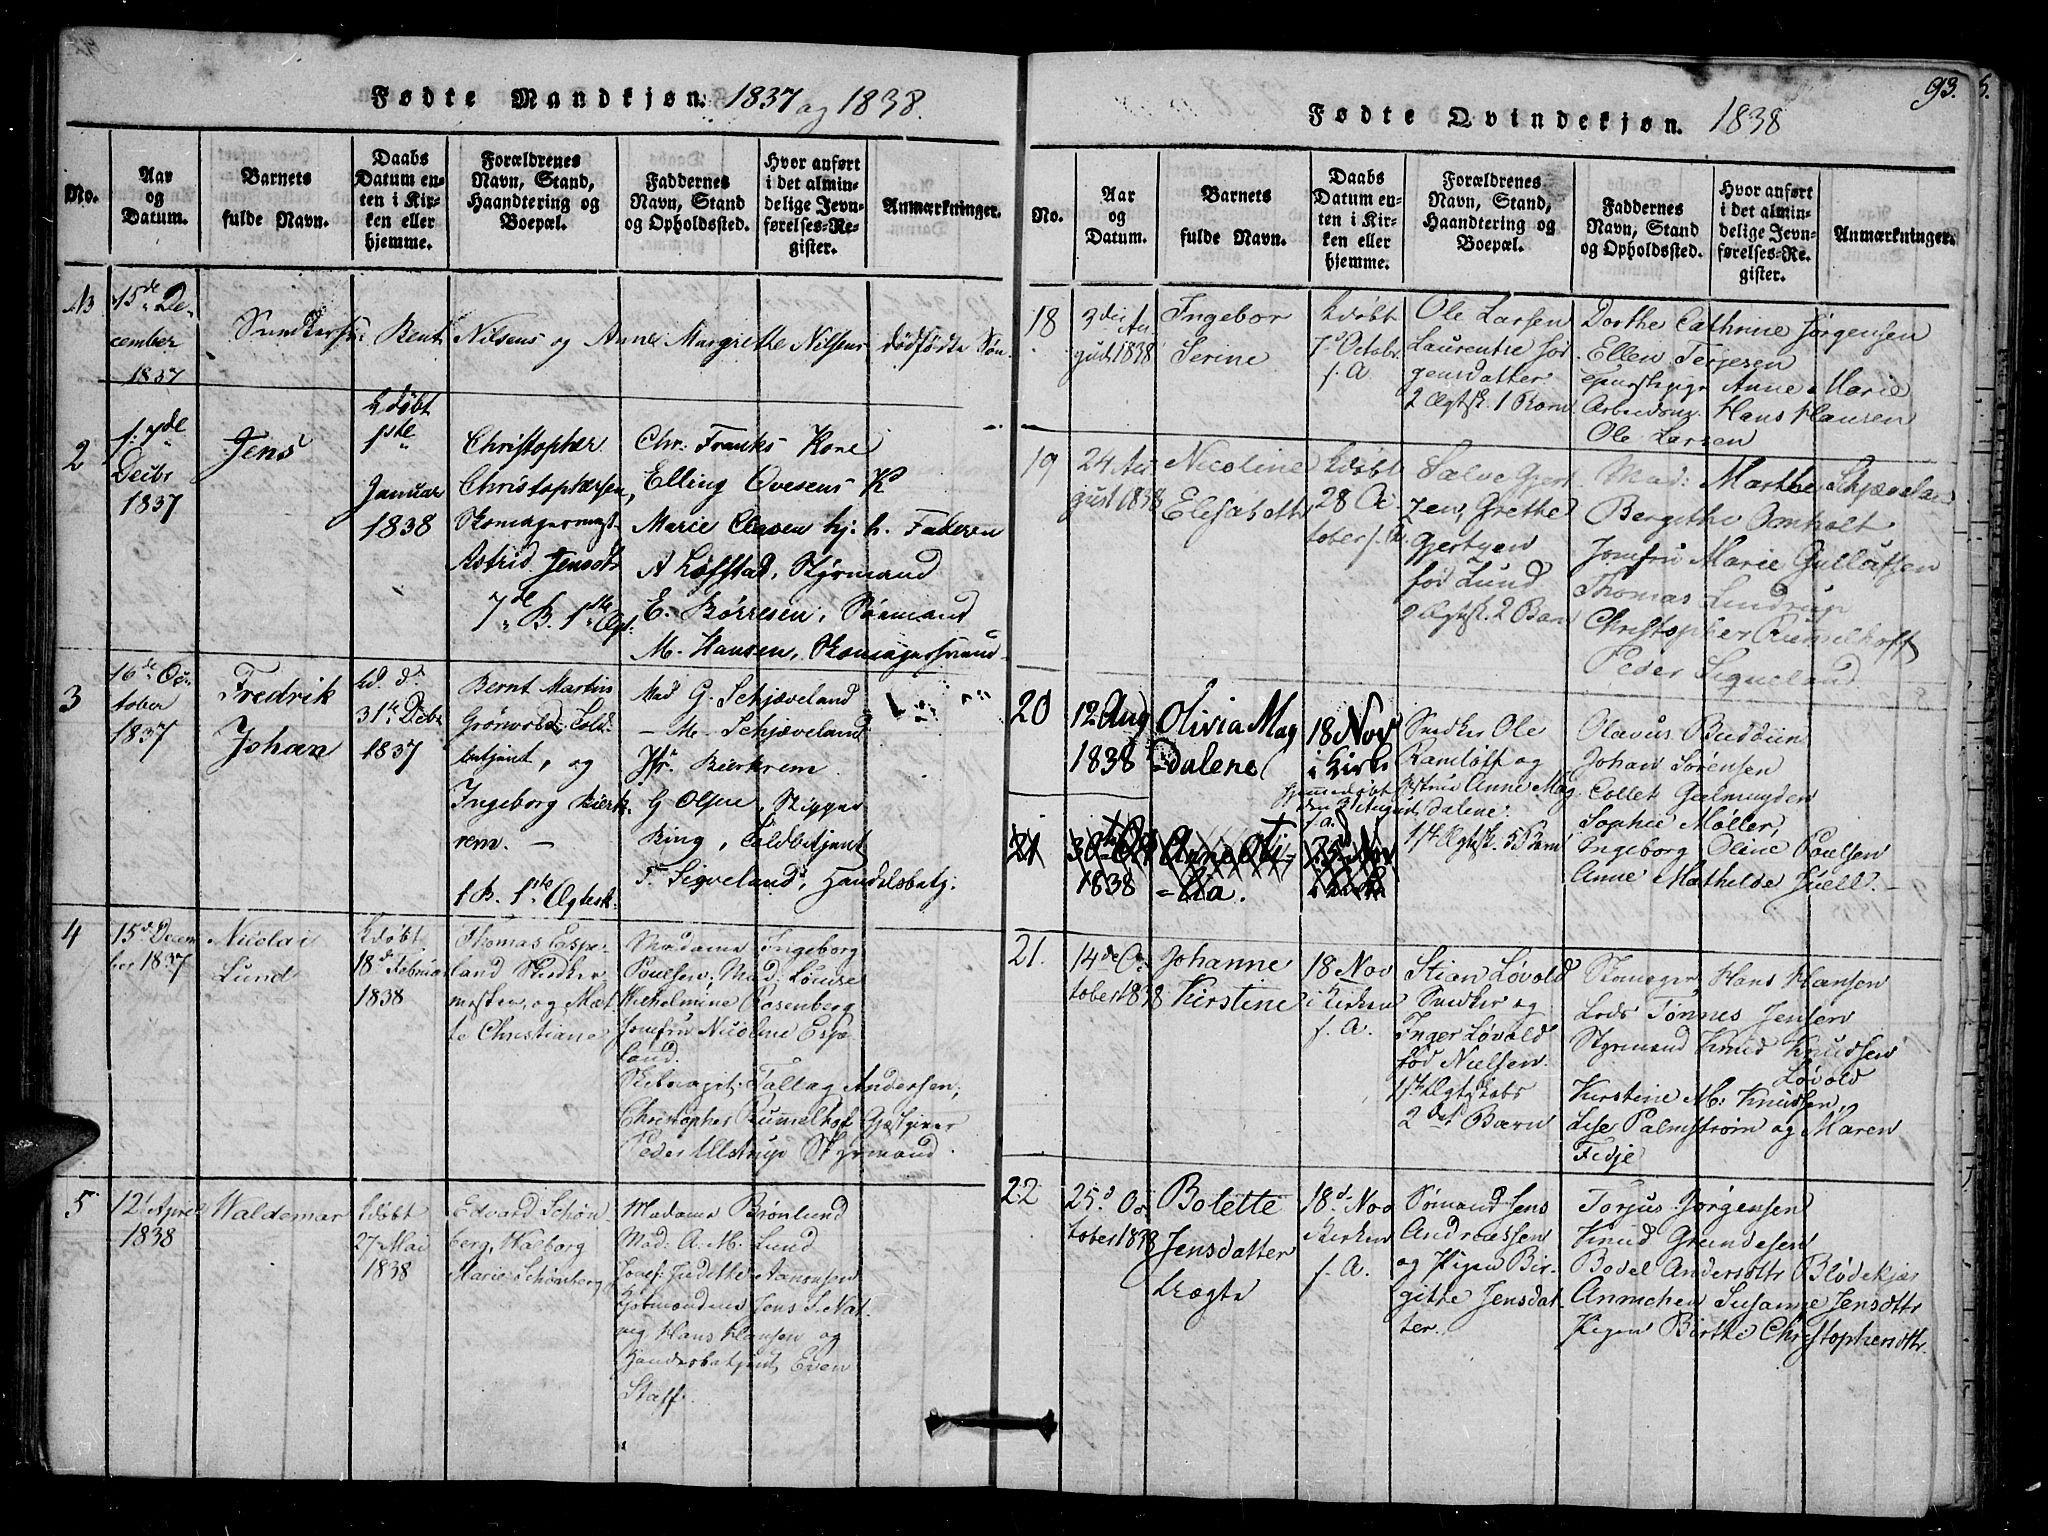 Fødte Mandkjøn. 1837 og 1838.
No.
Aar og Datum.
Barnets fulde Navn.
Daabs Datum enten i Kirken eller hjemme.
Forældrenes Navn, Stand, Haandtering og Boepæl.
Faddernes Navn, Stand og Opholdssted.
Hvor anført i det almindelige Jevnførelses-Register.
Anmærkninger.
15de De-
cember
1837
Bent Nilsens og Anne Margrethe Nilsens dødfødte Søn
2
Decbr
1837
Jens
døbt
1ste
Januar
1838
Christopher
Christophersen,
Skomagermest
Astrid Jensdtr
7de B. 1ste Ægt.
Chr. Franks Kone
Elling Ovesens K
Marie Clausen hj: h. Faderen
A Løfstad, Styrmand
E. Børresen, Sømand
M. Hansen, Skomagersvend
3
16de Oc-
tober
1837
Fredrik
Johan
31te Decbr
1837
Bernt Martins
Grønvold, Told-
betjent, og
Ingeborg Bierk-
rem. —
1 B. 1ste Ægtesk.
Mad G. Schjæveland
— M. Schjæveland
Jfr. Bierkrem
G Olsen, Skipper
Ring, Toldbetjent
T. Sigveland, Handelsbetj.
4
15de Decem
ber 1837
Nicolai
Lund
døbt
18de Februar
1838
Thomas Espe-
land Snedker-
mester, og Met-
te Christiane
Madame Ingeborg
Poulsen, Mad: Louise
Wilhelmine Rosenberg
Jomfru Nicoline Espe-
land.
Tallag Andersen;
Christopher Rummelhof Gjæstgiver
Peder Ulstrup Styrmand.
5
12 April
1838
Waldemar
døbt
27 Mai
1838
Edvard Schøn-
berg, Walborg
Marie Schønberg
Madame Brønlund
Mad: A. M. Lund
Jomf: Judithe Aanensen
Jens S. Nat-
vig, Hans Hansen og
Handelsbetjent Even
Staff.
93.
5.
Fødte Qvindekjøn. 1838
No.
Aar og Datum.
Barnets fulde Navn.
Daabs Datum enten i Kirken eller hjemme.
Forældrenes Navn, Stand, Haandtering og Boepæl.
Faddernes Navn, Stand og Opholdssted.
Hvor anført i det almindelige Jevnførelses-Register.
Anmærkninger.
18
3die Au-
gust 1838
Ingebor
Serine
døbt
7de Octobr.
f. A.
Ole Larsen
Laurentse Jør
gensdatter
2 Ægtsk. 1 Barn
Dorthe Cathrine Jørgensen
Ellen Terjesen
Anne Marie
Hans Hansen
Ole Larsen
19
24 Au
gust 1838
Nicoline
Elisabeth
døbt
28 Oc
tober f. A.
Salve Gjert
sen, Grethe
Gjertsen
fød Lund
2 Ægtsk. 2 Barn
Mad: Marthe Schjævelan
Bergithe Omholt
Jomfru Marie Gulløfsen
Thomas Lindrup
Christopher Rumelhoff
Peder Sigveland
20
12 Aug
1838
Olivia Mag
-dalene
18 Nov
i Kirke
Snedker Ole
Ramløft og
Anne Mag
dalene:
1ste Ægtsk. 5 Barn
Olavus Buddun
Johan Sørensen
Collet Galmuyden
Sophie Møller,
Ingeborg Oline Poulsen
Anne Mathilde Juell. —
21
1838
21.
14de Oc
tober 1838
Johanne
Kirstine
18 Nov
i Kirken
f. A.
Stian Løvold
Snedker og
Inger Løvold
fød Nielsen
1ste Ægtskabs
2det Barn
Skomager Hans Hansen
Lods Tønnes Jensen
Styrmand Knud Knudsen
Løvold
Kirstine M. Knudsen,
Lise Palmstrøm og Maren
Fedje
22
25de Oc
tober 1838
Bolette
Jensdatter
uægte
18de Nov
i Kirken
f. A.
Sømand Jens
Andreassen
og Pigen Bir-
gitte Jensdat-
ter.
Torjus Jørgensen
Knud Grundesen
Bodel Andersdttr Blødekjær
Annichen Susanne Jensdttr
Pigen Birthe Christophersdttr.